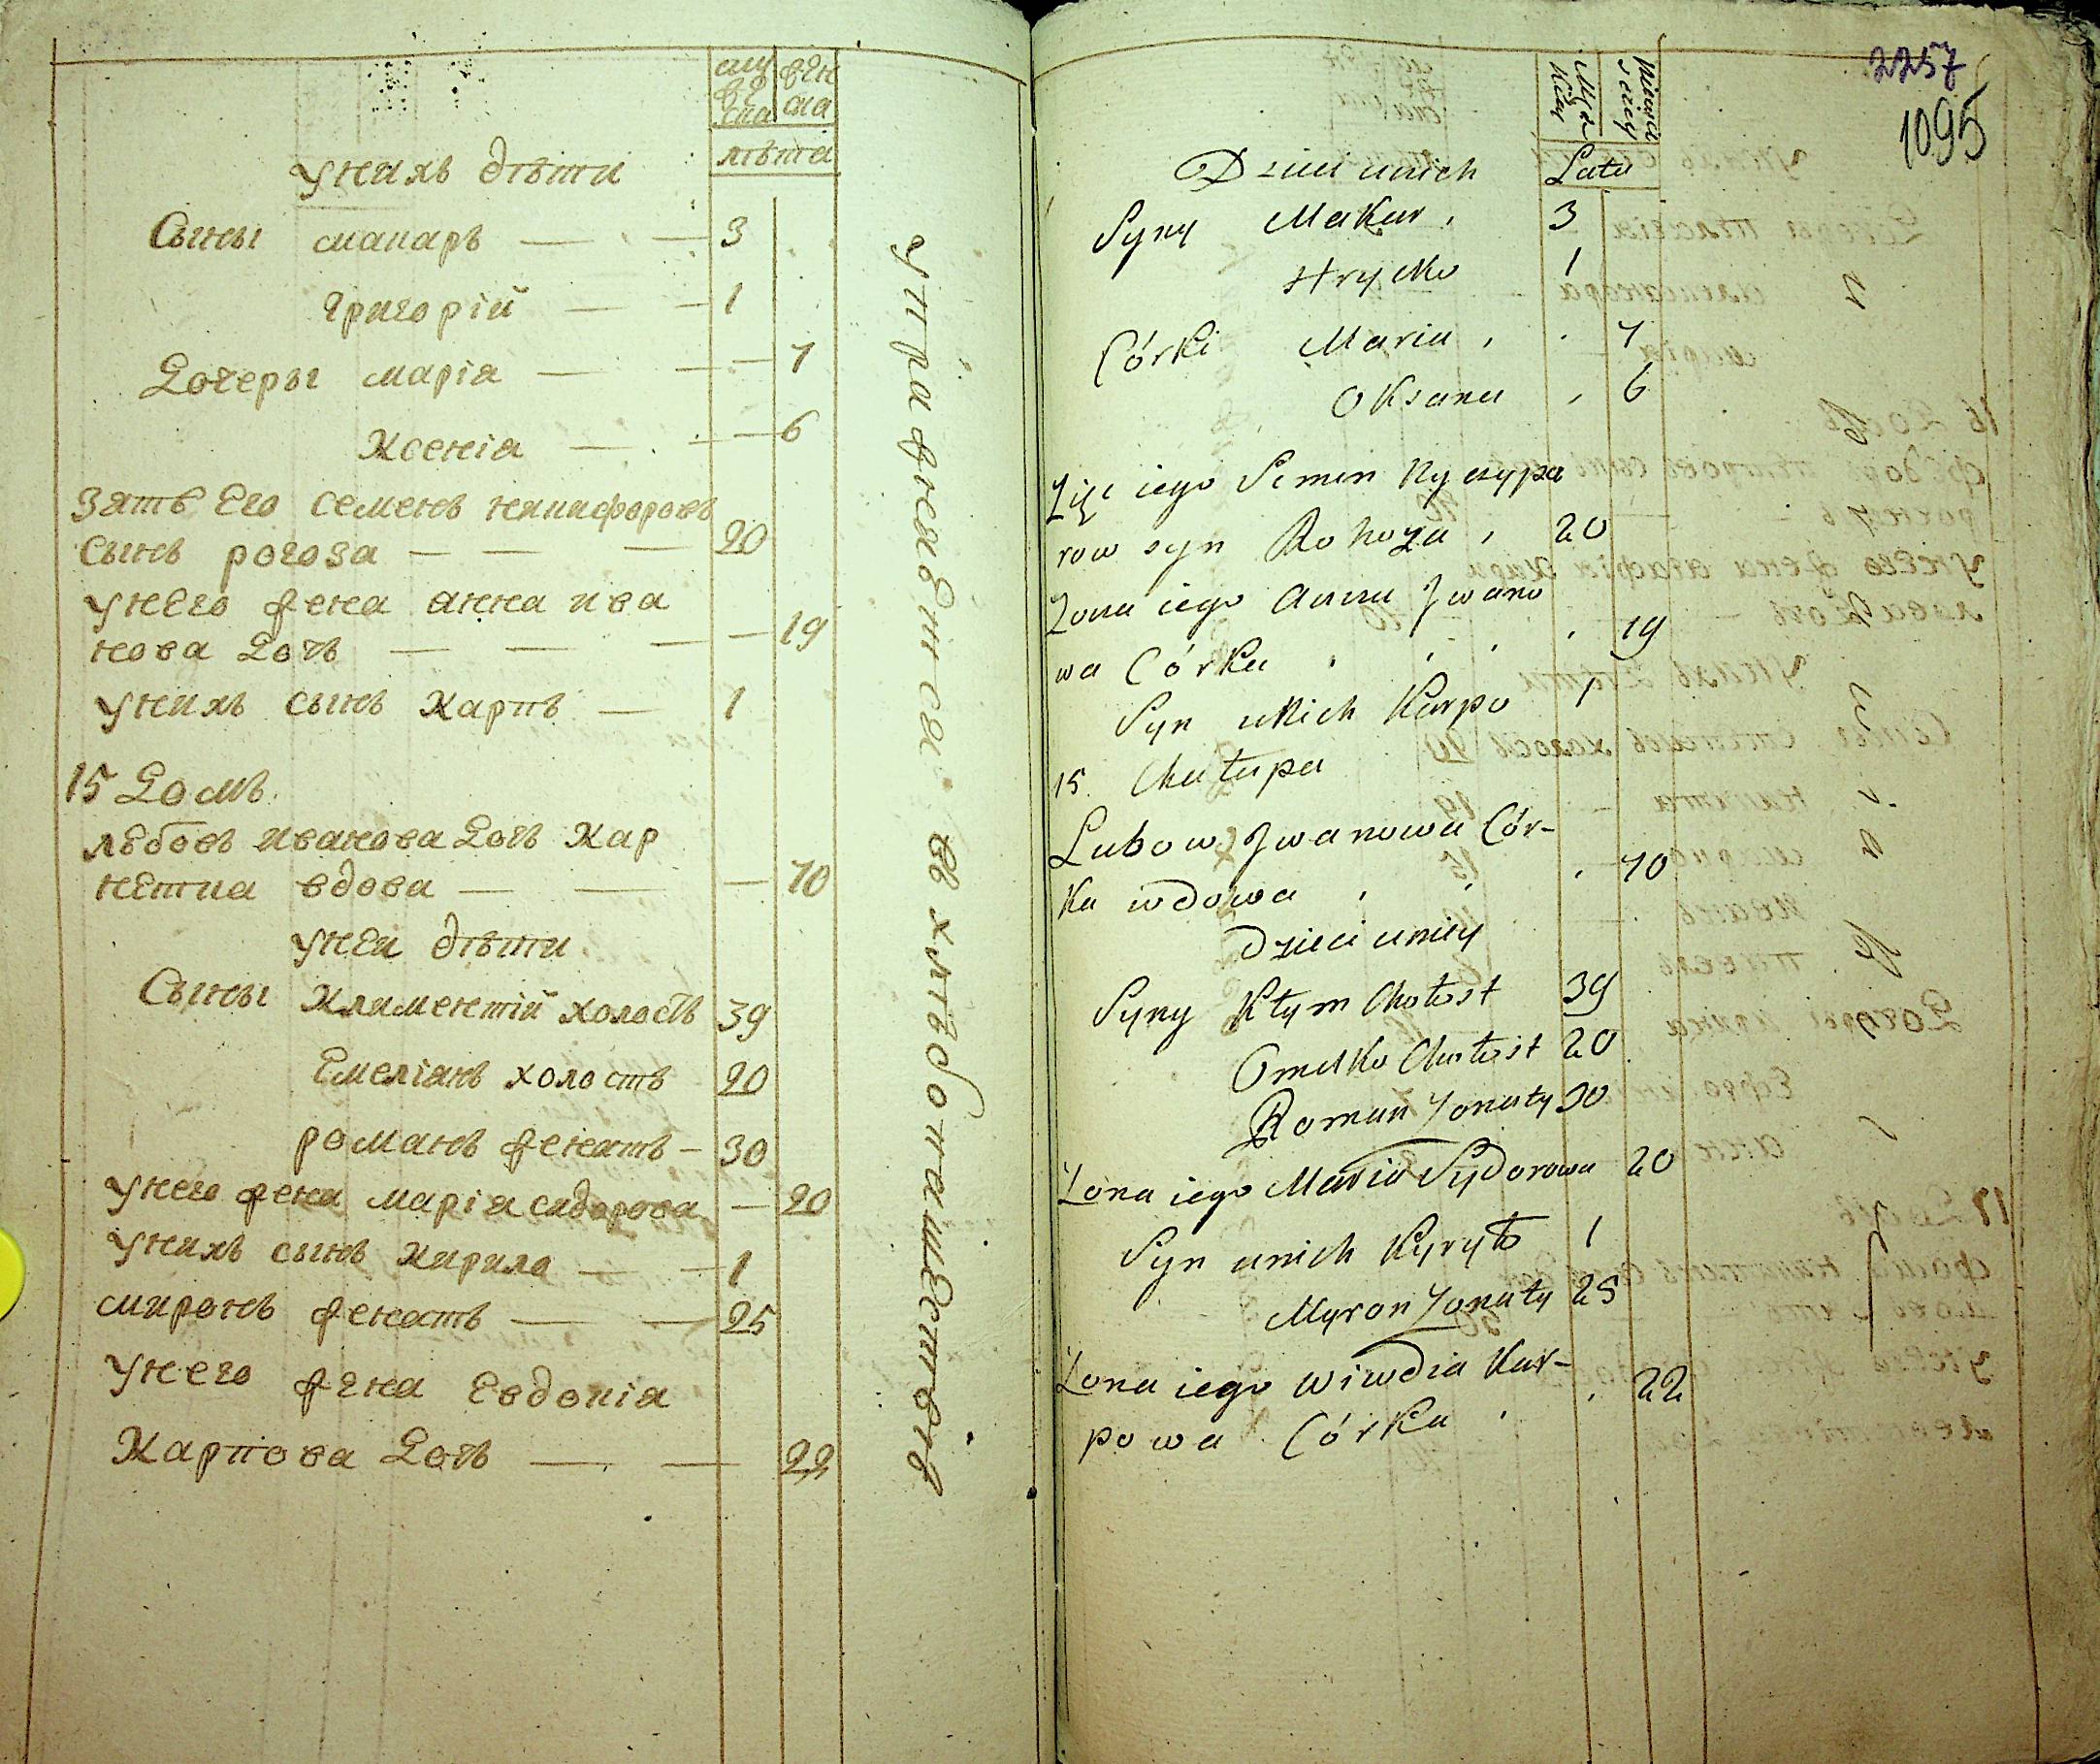 муже ска
жен ска
лѣта
У нихъ дѣти
Сыны макаръ — — 3
григорій — — 1
Дочеры марія — — 7
Ксенія — — 6
Зять Его семенъ никифоровъ
сынъ рогоза — — — 20
У него жена анна ива
нова дочь — — — 19
У нихъ сынъ карпъ — 1
15 Домъ
любовь иванова дочь Кар
вдова — — — 70
У неи дѣти
Сыны Климентій холостъ 39
Емеліанъ холостъ 20
романъ женатъ — 30
У него жена марія сидорова — 20
У нихъ сынъ кирило — — 1
миронъ женатъ — — 25
У него жена Евдокія
Карпова дочь — — 22
упражняется въ хлѣбопашествѣ
2257
1095
Męzkiey
Lata
Dzieci unich
Syny Makar, 3
Hryćko 1
Córki Maria, 7
Oksana , 6
Zięć iego Semen Nyczypo
row syn Rohoza , 20
Zona iego Anna Jwano
wa Córka , 19
Syn unich Karpo 1
15. Chałupa
Lubow Jwanowa Cór-
ka wdowa , 70
Dzieci uniey
Syny Kłym Chołost 39
Omelko Chołost 20
Roman Zonaty 30
Zona iego Maria Sydorowa 20
Syn unich Kyryło 1
Myron Zonaty 25
Zona iego Wiwdia Kar-
powa Córka , 22